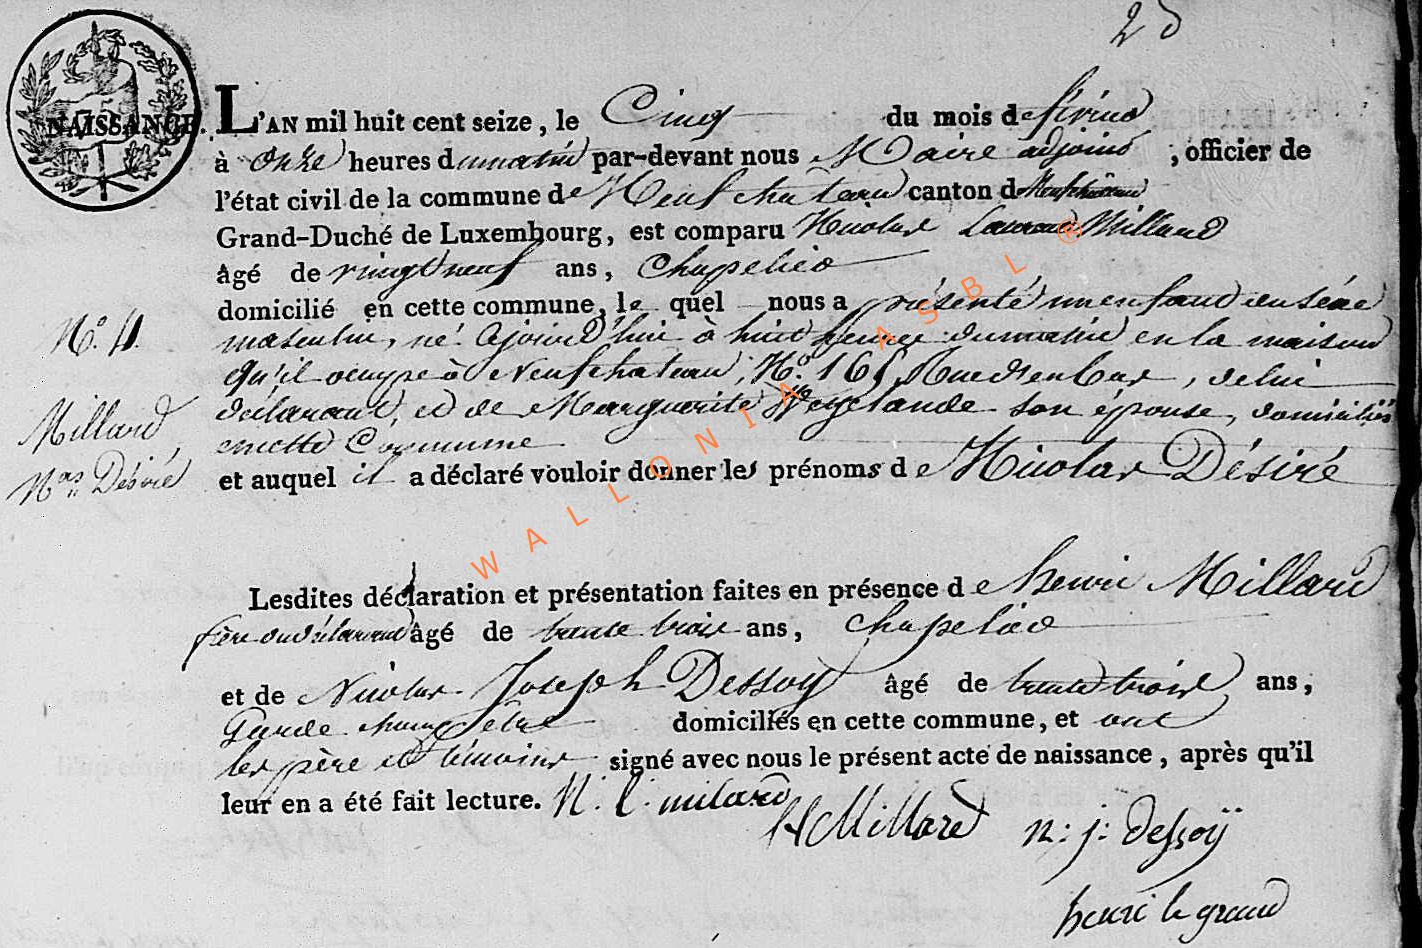 25
NAISSANCE.
L'AN mil huit cent seize, le Cinq du mois de février
à Onze heures du matin par-devant nous Maire adjoint, officier de
l'état civil de la commune de Neufchateau canton de Neufchateau
Grand-Duché de Luxembourg, est comparu Nicolas Laurent Millard
âgé de vingt neuf ans, Chapelier
domicilié en cette commune, le quel nous a présenté un enfant du sexe
masculin, né Ajourd'hui à huit heures du matin en la maison
N.o 4.
qu'il occupe à Neufchateau, N.o 161, Rue d'en bas, de lui
Millard,
déclarant, et de Marguerite Weyelande son épouse, domiciliés
en cette Commune
Nas Désiré
et auquel il a déclaré vouloir donner les prénoms de Nicolas Désiré
Lesdites déclaration et présentation faites en présence de henri Millard
frère du déclarant âgé de trente trois ans, Chapelier
et de Nicolas Joseph Dessoy âgé de trente trois ans,
Garde champêtre domiciliés en cette commune, et ont
les père et témoins signé avec nous le présent acte de naissance, après qu'il
leur en a été fait lecture. N. l. milard
H Millard n: j: dessoÿ
henri le grand
WALLONIA ASBL ®